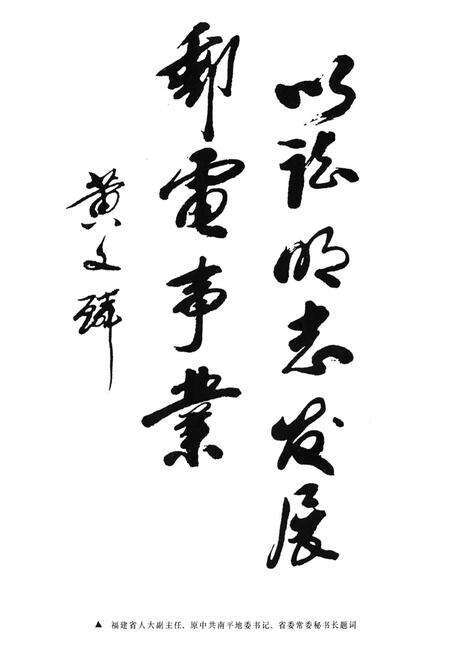 以誌明志发展
郵電事業
黄文麟
▲ 福建省人大副主任、原中共南平地委书记、省委常委秘书长题词